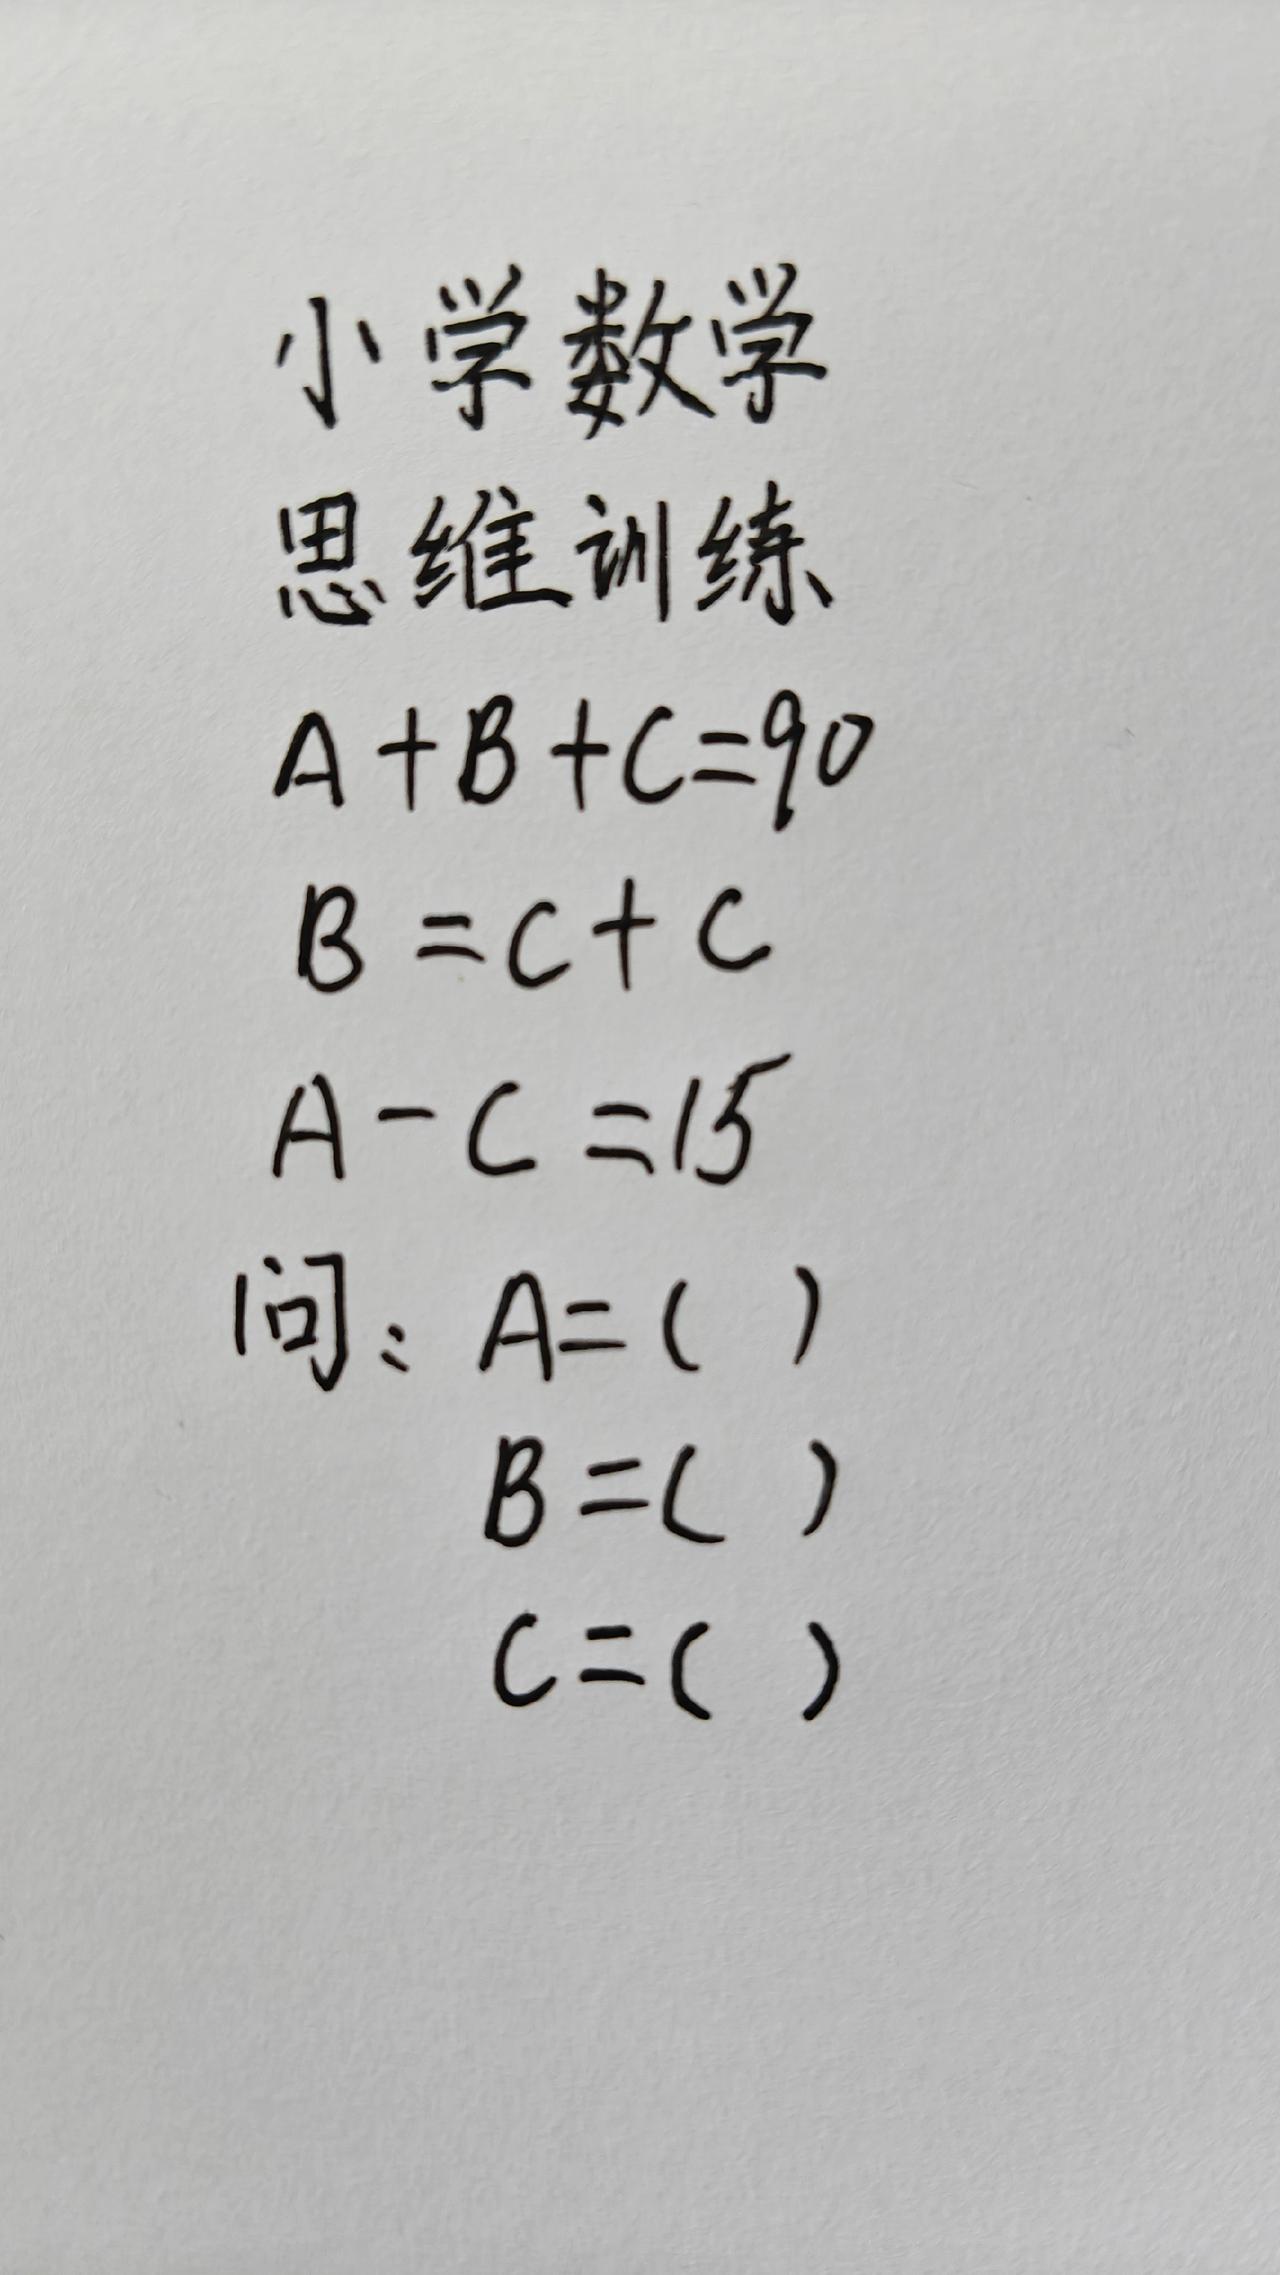 小学数学
思维训练
A+B+C=90
B=C+C
A-C=15
问：A=( )
B=( )
C=( )